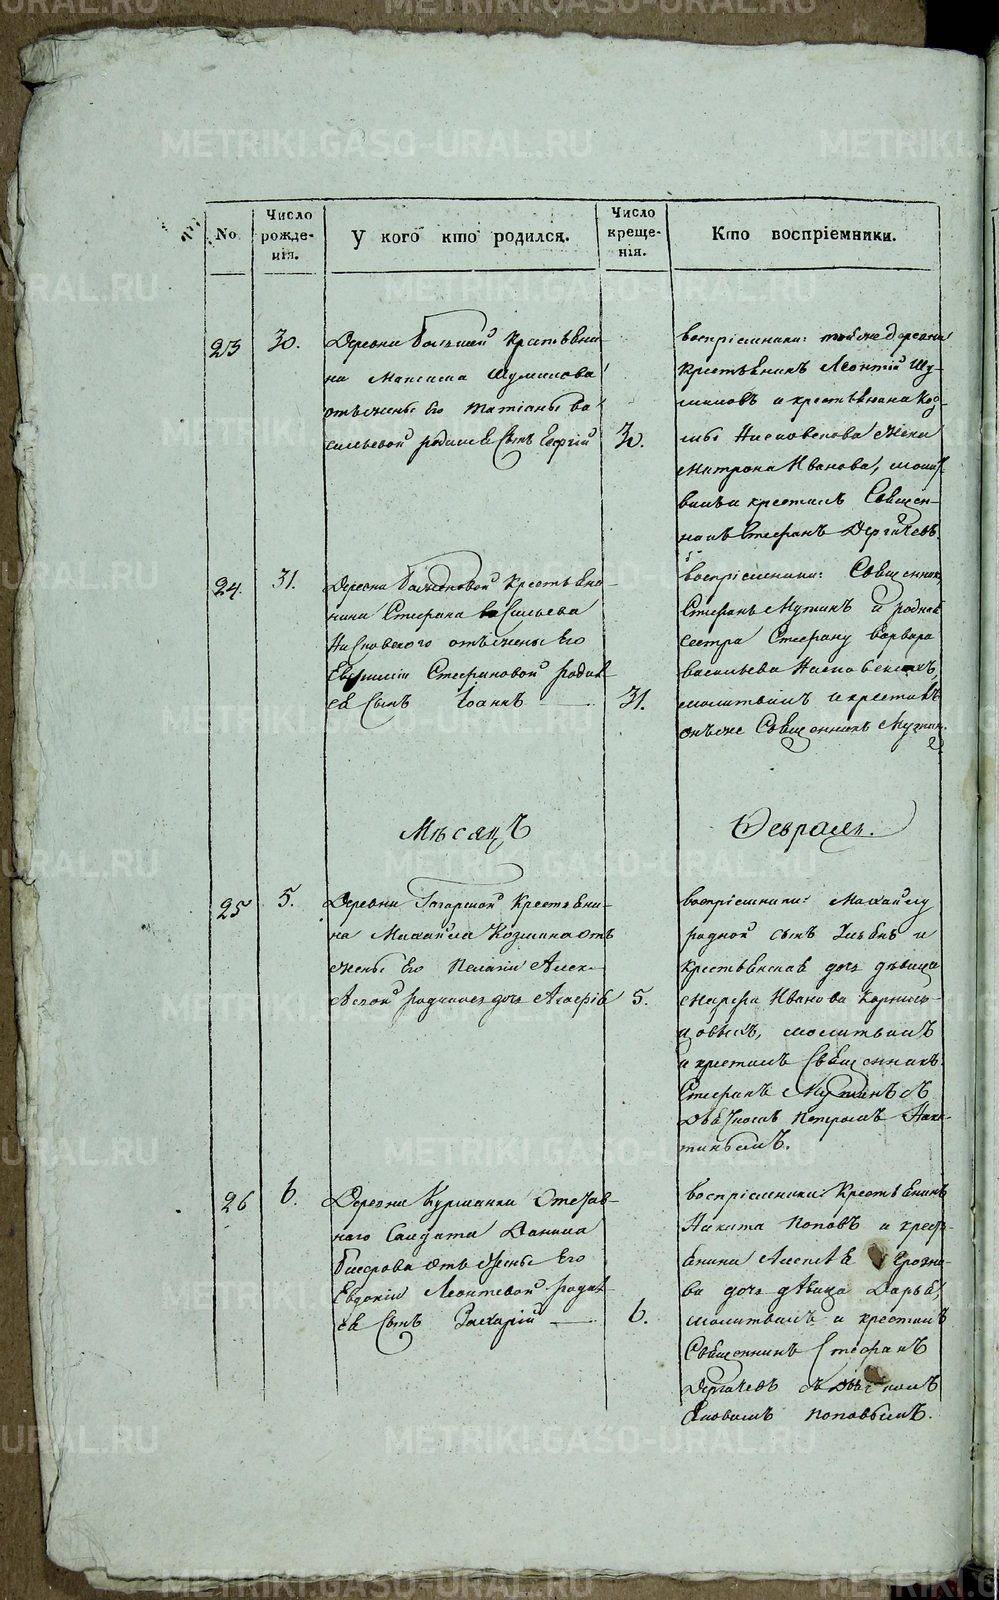 No
Число рожде-
нія.
У кого кто родился.
Число креще-
нія.
Кто воспріемники.
23
30.
Деревни крестьяни-
на Максима Шумилова
отъ жены Его Татіаны Ва-
сильевой родился Сынъ Георгій
30.
воспріемники: тойже деревни
крестьянинъ Леонтій Шу-
миловъ и крестьянина Коз-
мы жена
Матрона Иванова, молит-
вилъ и крестилъ Священ-
никъ Стефанъ Дергачевъ
24.
31.
Деревни крестьяни-
нина Стефана Васильева
отъ жены Его
Стефановой родил-
ся Сынъ Іоаннъ
31.
воспріемники: Священникъ
Стефанъ Мутинъ и родная
сестра Стефану Варвара
Васильева
молитвилъ и крестилъ
онъже Священникъ Мутин.
Мѣсяцъ
Февраль.
25
5.
Деревни Гагарской крестьяни-
на Михайла Козмина отъ
жены Его Пелагіи Алек-
родилась дочь Агафія
5.
воспріемники: Михайлу
родной сынъ Ульянъ и
крестьянская дочь дѣвица
Марфа Иванова
молитвилъ
и крестилъ Священникъ
Стефанъ Мутинъ съ
Дьячкомъ Петромъ Ники-
тинымъ.
26
6.
Деревни Курманки Отстав-
наго Солдата Данила
отъ жены Его
Евдокіи Леонтьевой родил-
ся Сынъ Захарій
6.
воспріемники: Крестьянинъ
Никита Поповъ и кресть-
янина Алексѣя
ва дочь дѣвица Дарья,
молитвилъ и крестилъ
Священникъ Стефанъ
Дергачевъ съ Дьячкомъ
Поповымъ.
METRIKI.GASO-URAL.RU